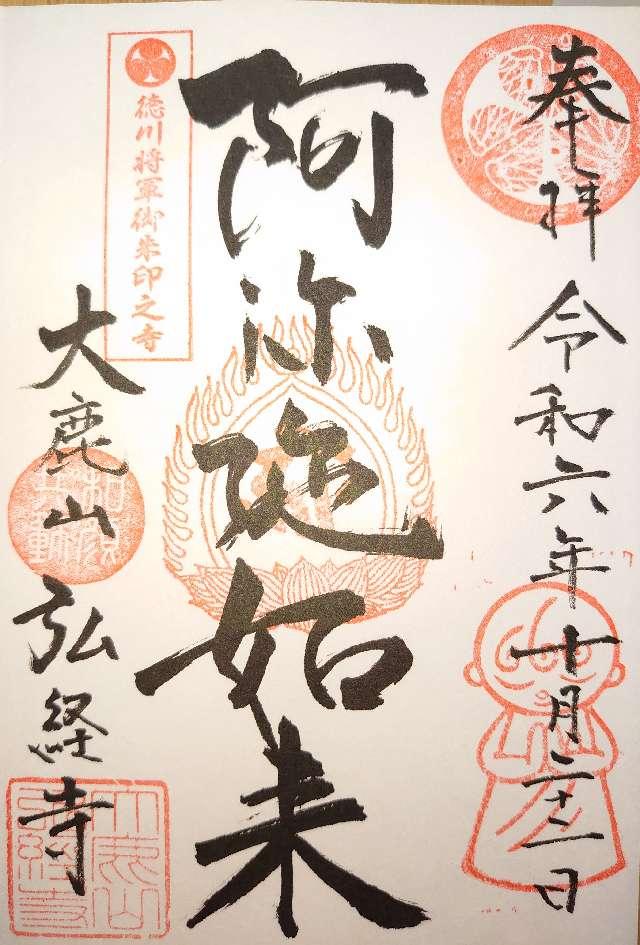 奉拝
令和六年十月二十一日
阿弥陀如来
徳川将軍御朱印之寺
大鹿山
弘経寺